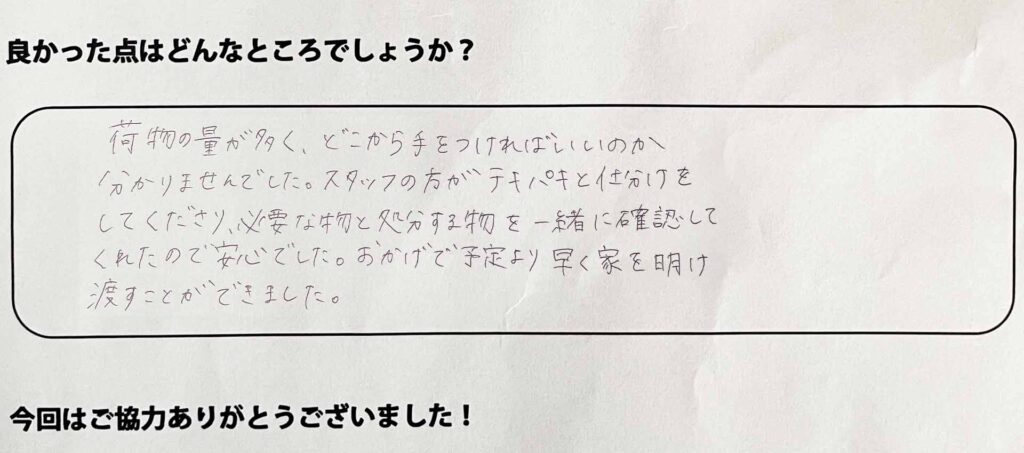 良かった点はどんなところでしょうか？
荷物の量が多く、どこから手をつければいいのか
分かりませんでした。スタッフの方がテキパキと仕分けを
してくださり、必要な物と処分する物を一緒に確認して
くれたので安心でした。おかげで予定より早く家を明け
渡すことができました。
今回はご協力ありがとうございました！